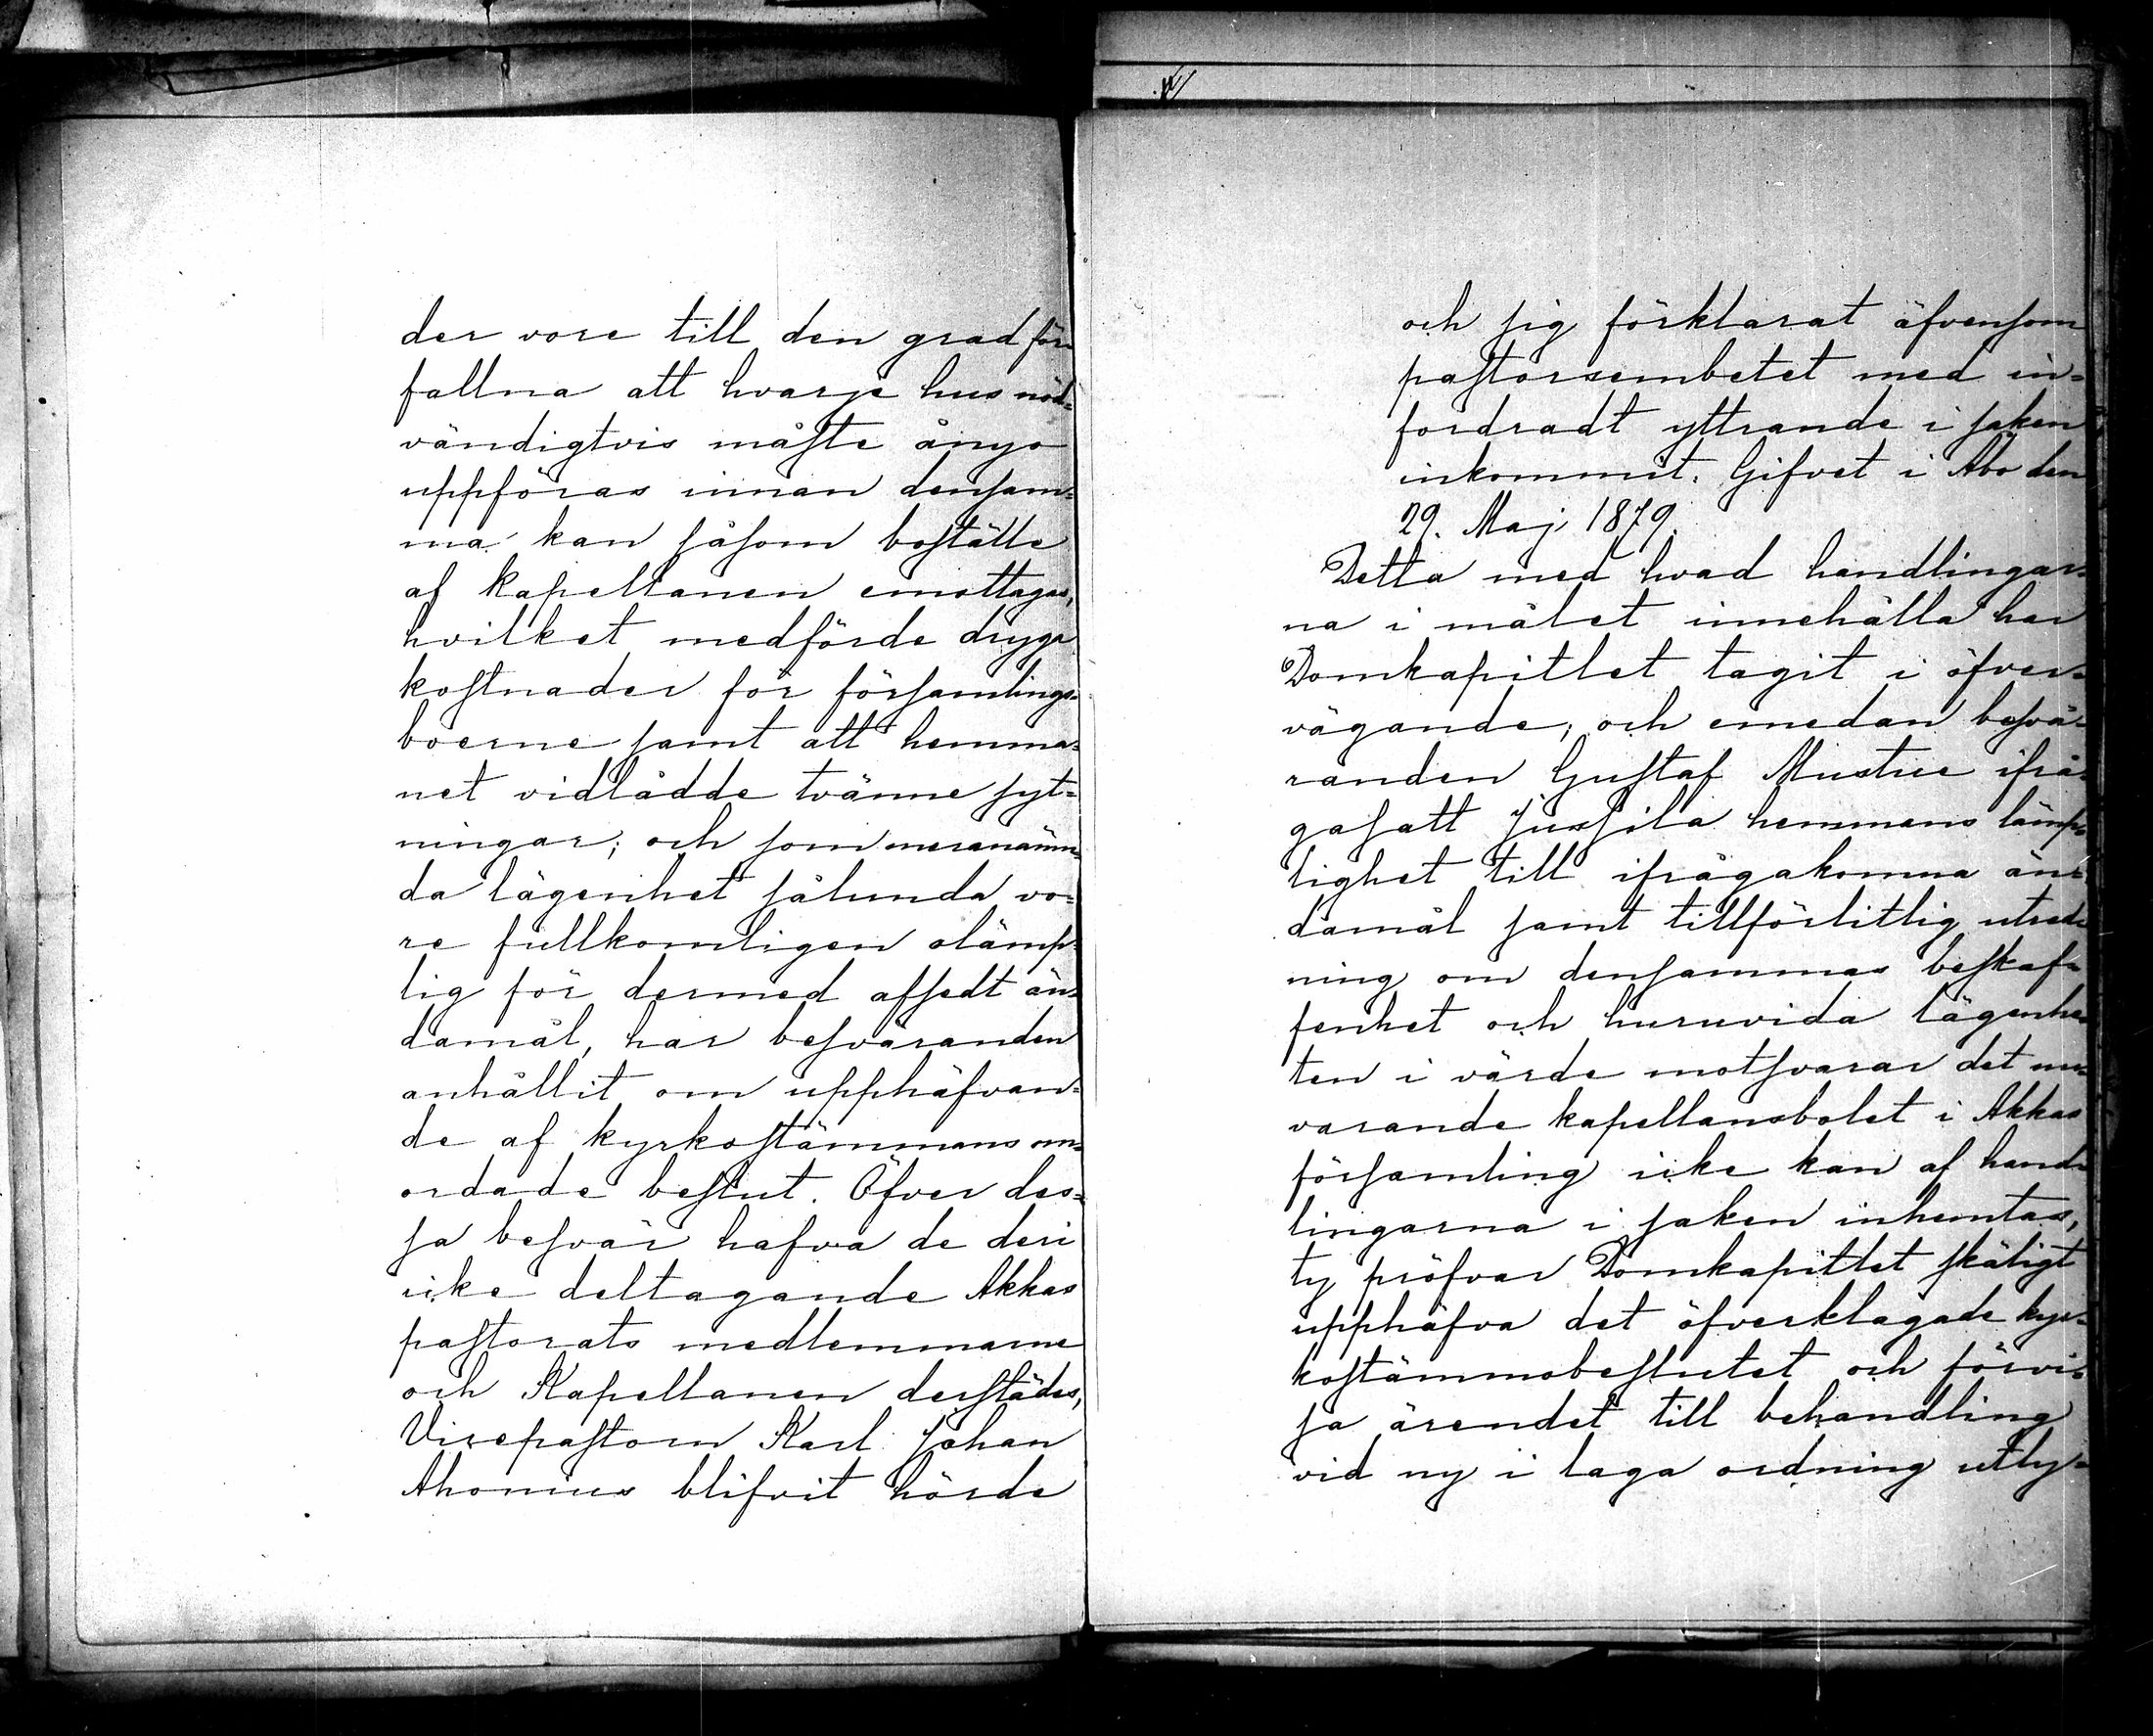 der vore till den grad för-
fallna att hvarje hus nöd-
vändigtvis måste ånyo
uppföras innan densam-
ma kan såsom boställe
af kapellanen emottagas,
hvilket medförde dryga
kostnader för församlings-
boerne samt att hemma-
net vidlådde tvänne syt-
ningar; och som meranämn-
da lägenhet sålunda vo-
re fullkomligen olämp-
lig för dermed afsedt än-
damål, har besväranden
anhållit om upphäfvan-
de af kyrkostämmans om-
ordade beslut. Öfver des-
sa besvär hafva de deri
icke deltagande Akkas
pastorats medlemmarne
och Kapellanen derstädes,
Vicepastorn Karl Johan
Ahonius blifvit hörde
och sig förklarat äfvensom
pastorsembetet med in-
fordradt yttrande i saken
inkommit. Gifvet i Åbo den
29. Maj 1879.
Detta med hvad handlingar-
na i målet innehålla har
Domkapitlet tagit i öfver-
vägande; och emedan besvä-
randen Gustaf Mustue ifrå-
gasatt Jussila hemmans lämp-
lighet till ifrågakomna än-
damål samt tillförlitlig utred-
ning om densammas beskaf-
fenhet och huruvida lägenhe-
ten i värde motsvarar det nu-
varande kapellansbolet i Akkas
församling icke kan af hand-
lingarna i saken inhemtas,
ty pröfvar Domkapitlet skäligt
upphäfva det öfverklagade kyr-
kostämmobeslutet och förvi-
sa ärendet till behandling
vid ny i laga ordning utly-